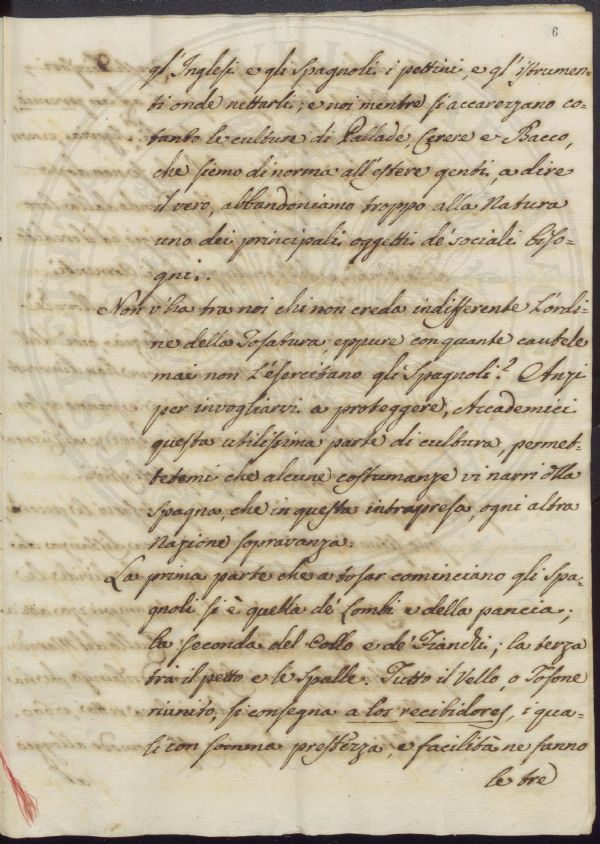 6
gl'Inglesi e gli Spagnoli i pettini, e gl'istrumen-
ti onde nettarli; e noi mentre si accarezzano co-
tanto le culture di Pallade, Cerere e Bacco,
che siemo di norma all'estere genti, a dire
il vero, abbandoniamo troppo alla Natura
uno dei principali oggetti de' sociali biso-
gni.
Non v'ha tra noi chi non creda indifferente l'ordi-
ne della Tosatura, eppure con quante cautele
mai non l'esercitano gli Spagnoli? Anzi
per invogliarvi a proteggere, Accademici
questa utilissima parte di cultura, permet-
tetemi che alcune costumanze vi narri della
Spagna, che in questa intrapresa, ogni altra
Nazione sopravanza.
La prima parte che a tosar cominciano gli Spa-
gnoli si è quella de' Lombi e della pancia;
la seconda del Collo e de' Fianchi; la terza
tra il petto e le spalle. Tutto il Vello, o Tosone
riunito, si consegna a los recibidores, i qua-
li con somma prestezza, e facilità ne fanno
le tre